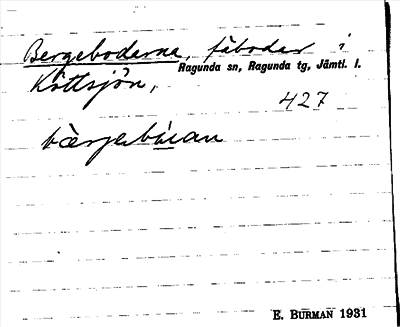 Bergeboderna, fäbodar i
Ragunda sn, Ragunda tg, Jämtl. l.
Köttsjön,
427
E. BURMAN 1931